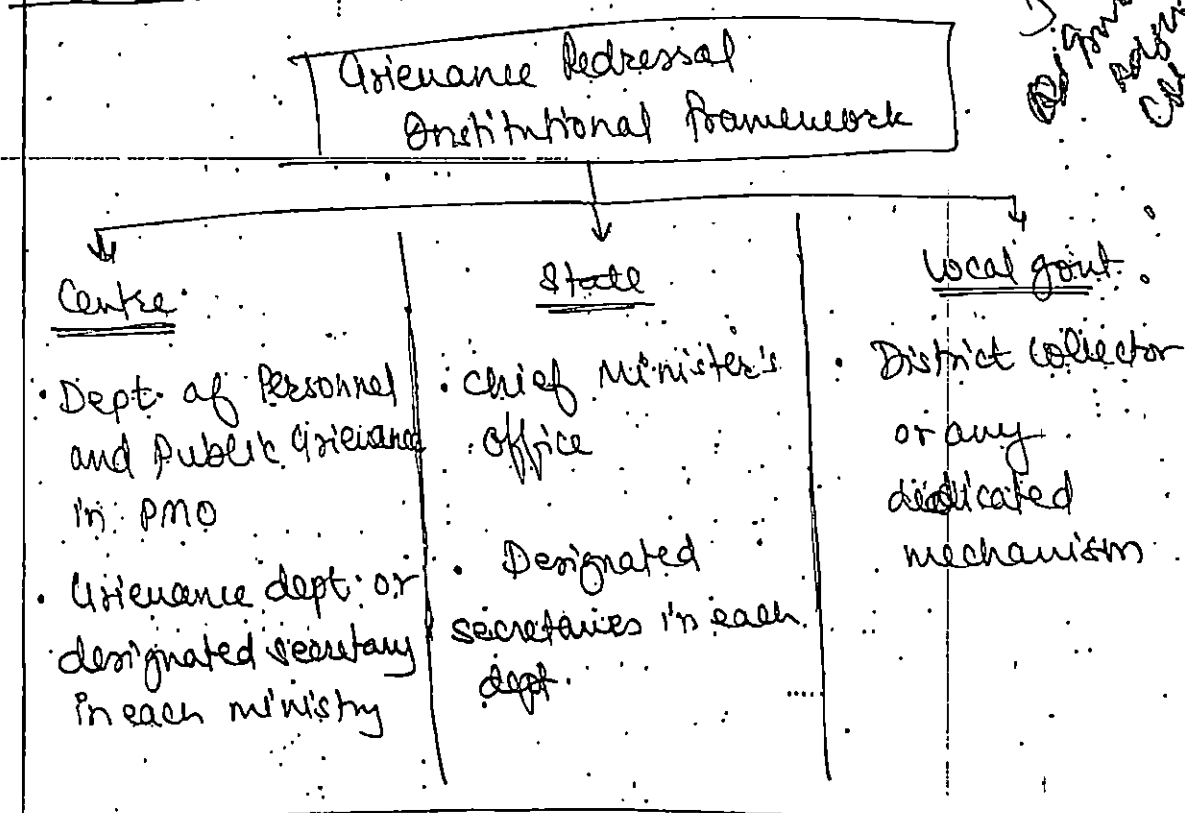 Grievance Redressal
Institutional Framework
Centre
• Dept. of Personnel
and Public Grievance
in PMO
• Grievance dept. or
designated secretary
in each ministry
State
• Chief Minister's
Office
• Designated
secretaries in each
dept.
Local govt.
• District Collector
or any
dedicated
mechanism